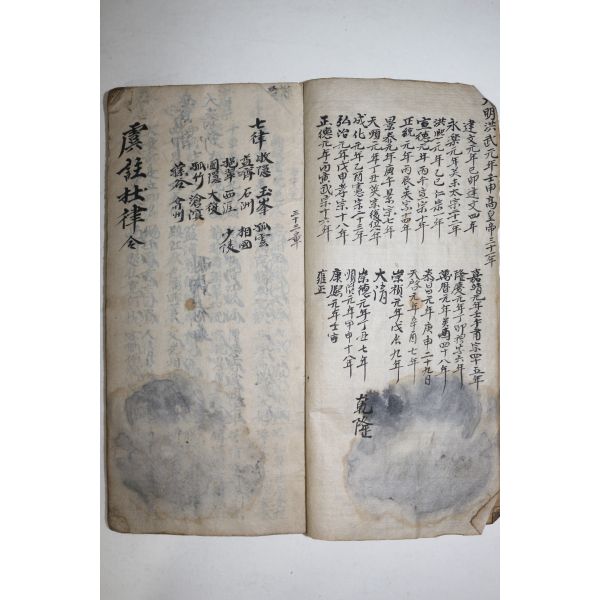 大明洪武元年壬申高皇帝三十一年
建文元年己卯建文四年
永樂元年癸未太宗二十二年
洪熙元年乙巳仁宗一年
宣德元年丙午宣宗十年
正統元年丙辰英宗十四年
景泰元年庚午景宗七年
天順元年丁丑英宗復位八年
成化元年乙酉憲宗二十三年
弘治元年戊申孝宗十八年
正德元年丙寅武宗十六年
嘉靖元年壬午肅宗四十五年
隆慶元年丁卯穆宗六年
萬曆元年癸酉四十八年
泰昌元年庚申二十九日
天啓元年辛酉七年
崇禎元年戊辰九年
大清
崇德元年丁丑七年
順治元年甲申十八年
康熙元年壬寅
雍正
乾隆
三十二章
七律
牧隱 玉峯 孤雲
益齋 石洲 相國
挹翠 西涯 少陵
圃隱 大復
孤竹 滄溟
蓀谷 弇州
虞註杜律仝